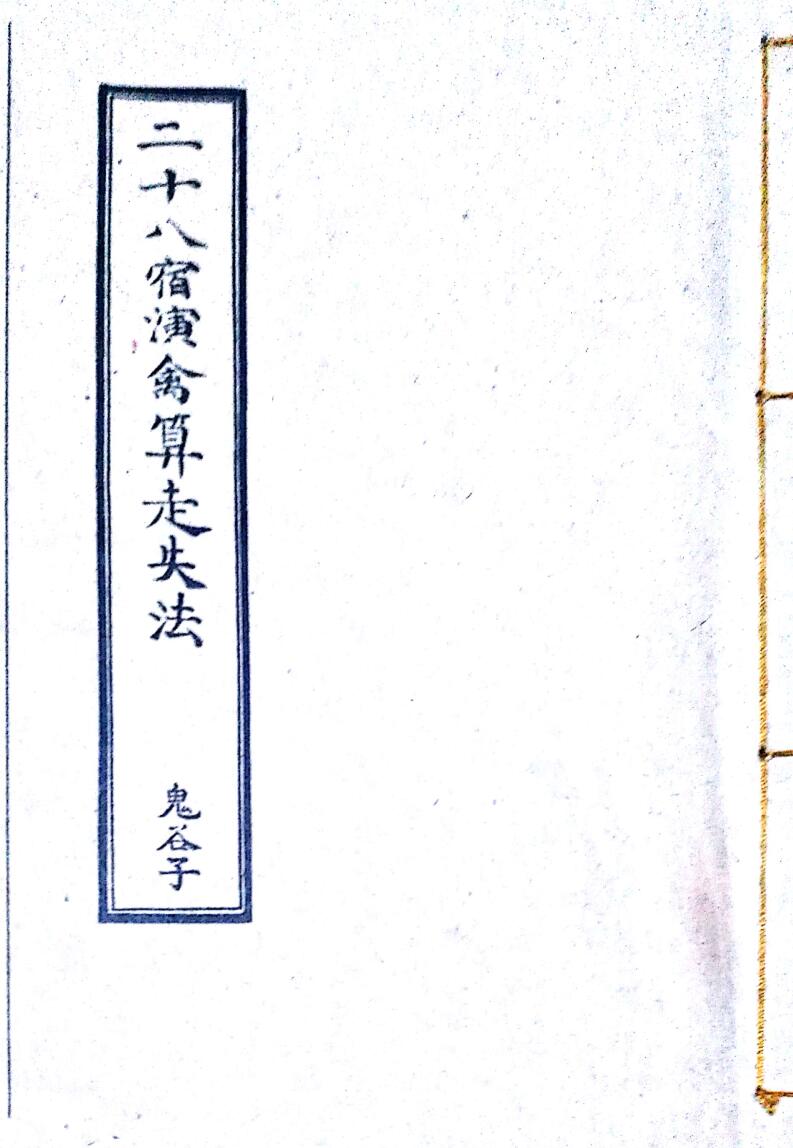 二十八宿演禽算走失法
鬼谷子